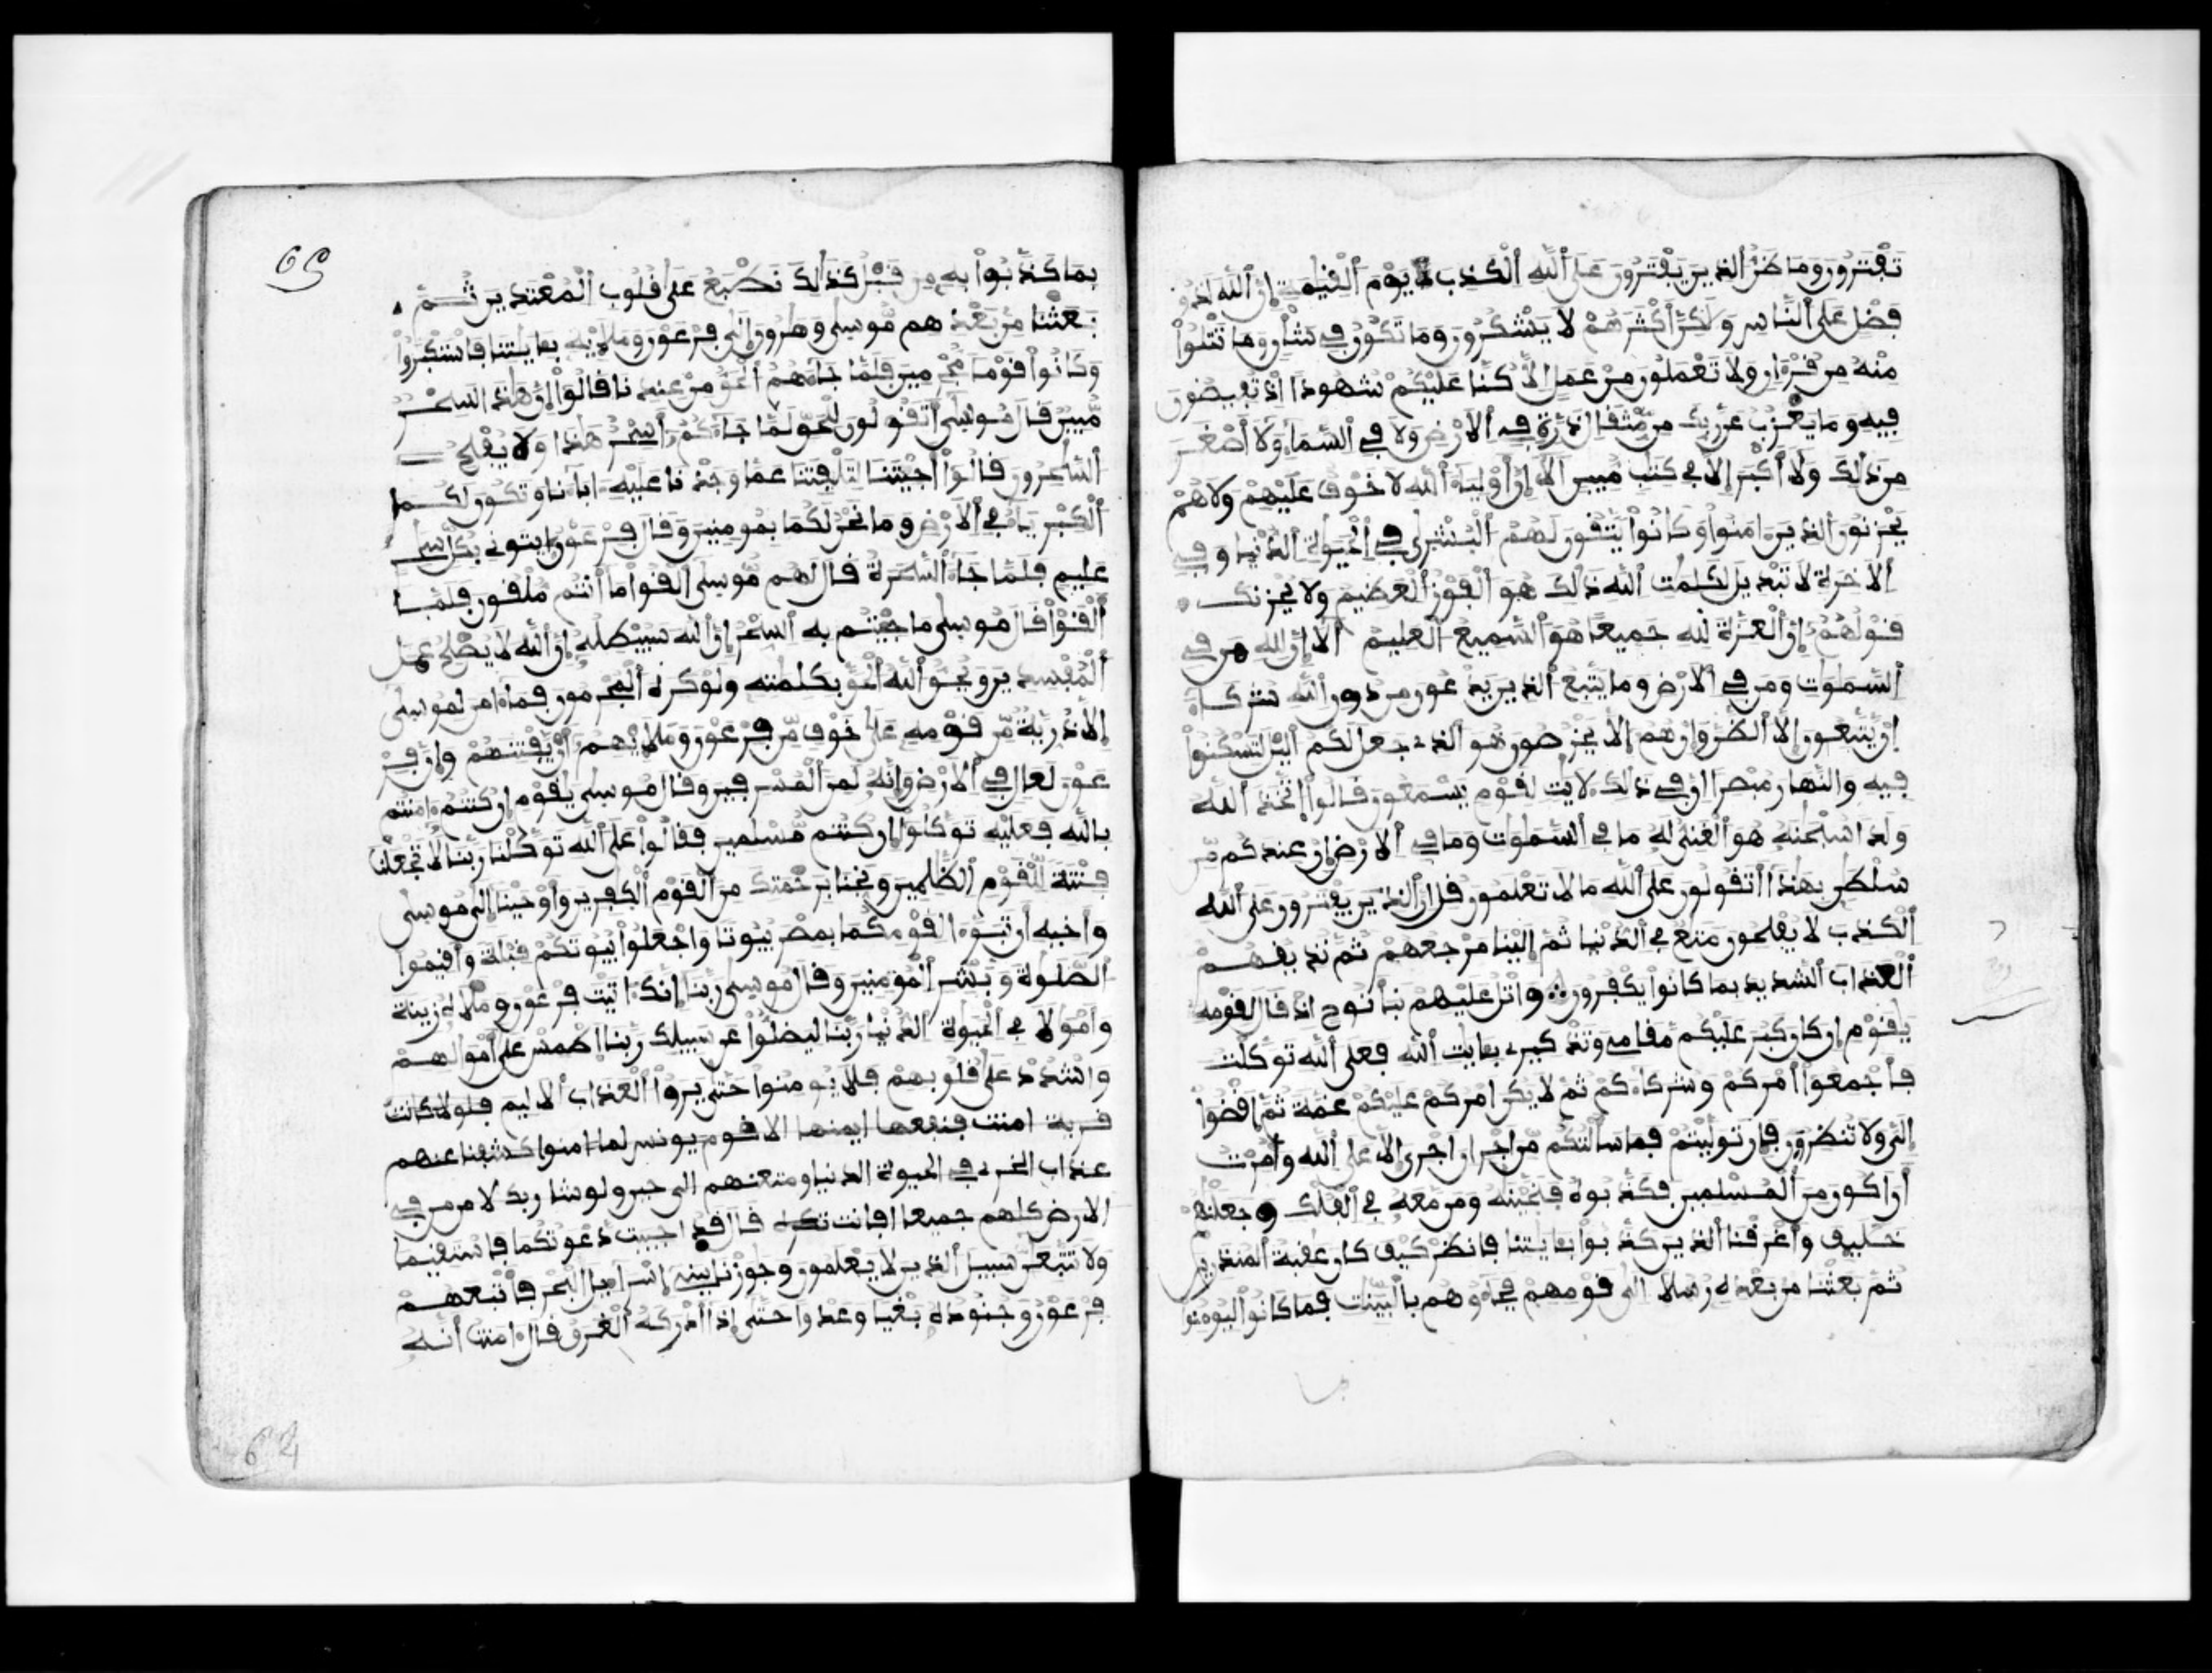 تفترون وما ظن الذين يفترون على الله الكذب يوم القيمة ان الله لذو
فضل على الناس ولكن اكثرهم لا يشكرون وما تكون في شان وما تتلوا
منه من قرءان ولا تعملون من عمل الا كنا عليكم شهودا اذ تفيضون
فيه وما يعزب عن ربك من مثقال ذرة في الارض ولا في السماء ولا أصغر
من ذلك ولا أكبر الا في كتب مبين الا ان أولياء الله لا خوف عليهم ولا هم
يحزنون الذين ءامنوا وكانوا يتقون لهم البشرى في الحيوة الدنيا وفي
الاخرة لا تبديل لكلمت الله ذلك هو الفوز العظيم ولا يحزنك
قولهم ان العزة لله جميعا هو السميع العليم الا ان لله من في
السموت ومن في الارض وما يتبع الذين يدعون من دون الله شركاء
ان يتبعون الا الظن وان هم الا يخرصون هو الذي جعل لكم اليل لتسكنوا
فيه والنهار مبصرا ان في ذلك لايت لقوم يسمعون قالوا اتخذ الله
ولدا سبحنه هو الغني له ما في السموت وما في الارض ان عندكم من
سلطن بهذا أتقولون على الله ما لا تعلمون قل ان الذين يفترون على الله
الكذب لا يفلحون متع في الدنيا ثم الينا مرجعهم ثم نذيقهم
العذاب الشديد بما كانوا يكفرون واتل عليهم نبأ نوح اذ قال لقومه
يقوم ان كان كبر عليكم مقامي وتذكيري بئايت الله فعلى الله توكلت
فأجمعوا أمركم وشركاءكم ثم لا يكن امركم عليكم غمة ثم اقضوا
الي ولا تنظرون فان توليتم فما سألتكم من اجر ان اجري الا على الله وأمرت
أن اكون من المسلمين فكذبوه فنجينه ومن معه في الفلك وجعلنهم
خليف وأغرقنا الذين كذبوا بئايتنا فانظر كيف كان عقبة المنذرين
ثم بعثنا من بعده رسلا الى قومهم فجاءوهم بالبينت فما كانوا ليومنوا
65
بما كذبوا به من قبل كذلك نطبع على قلوب المعتدين ثم
بعثنا من بعدهم موسى وهرون الى فرعون وملايه بئايتنا فاستكبروا
وكانوا قوما مجرمين فلما جاءهم الحق من عندنا قالوا ان هذا لسحر
مبين قال موسى أتقولون للحق لما جاءكم أسحر هذا ولا يفلح
السحرون قالوا أجيتنا لتلفتنا عما وجدنا عليه ءاباءنا وتكون لكما
الكبرياء في الارض وما نحن لكما بمومنين وقال فرعون ايتوني بكل سحر
عليم فلما جاء السحرة قال لهم موسى القوا ما أنتم ملقون فلما
ألقوا قال موسى ما جيتم به السحر ان الله سيبطله ان الله لا يصلح عمل
المفسدين ويحق الله الحق بكلمته ولو كره المجرمون فما ءامن لموسى
الا ذرية من قومه على خوف من فرعون وملايهم أن يفتنهم وان فر
عون لعال في الارض وانه لمن المسرفين وقال موسى يقوم ان كنتم ءامنتم
بالله فعليه توكلوا ان كنتم مسلمين فقالوا على الله توكلنا ربنا لا تجعلنا
فتنة للقوم الظلمين ونجنا برحمتك من القوم الكفرين وأوحينا الى موسى
وأخيه أن تبوءا لقومكما بمصر بيوتا واجعلوا بيوتكم قبلة وأقيموا
الصلوة وبشر المومنين وقال موسى ربنا إنك ءاتيت فرعون وملاه زينة
وأمولا في الحيوة الدنيا ربنا ليضلوا عن سبيلك ربنا اطمس على أمولهم
واشدد على قلوبهم فلا يومنوا حتى يروا العذاب الاليم فلولا كانت
قرية امنت فنفعها ايمنها الا قوم يونس لما ءامنوا كشفنا عنهم
عذاب الخزي في الحيوة الدنيا ومتعنهم الى حين ولو شا ربك لامن من في
الارض كلهم جميعا افانت تكره قال قد اجيبت دعوتكما فاستقيما
ولا تتبعن سبيل الذين لا يعلمون وجوزنا ببني إسراءيل البحر فأتبعهم
فرعون وجنوده بغيا وعدوا حتى إذا أدركه الغرق قال ءامنت أنه
64